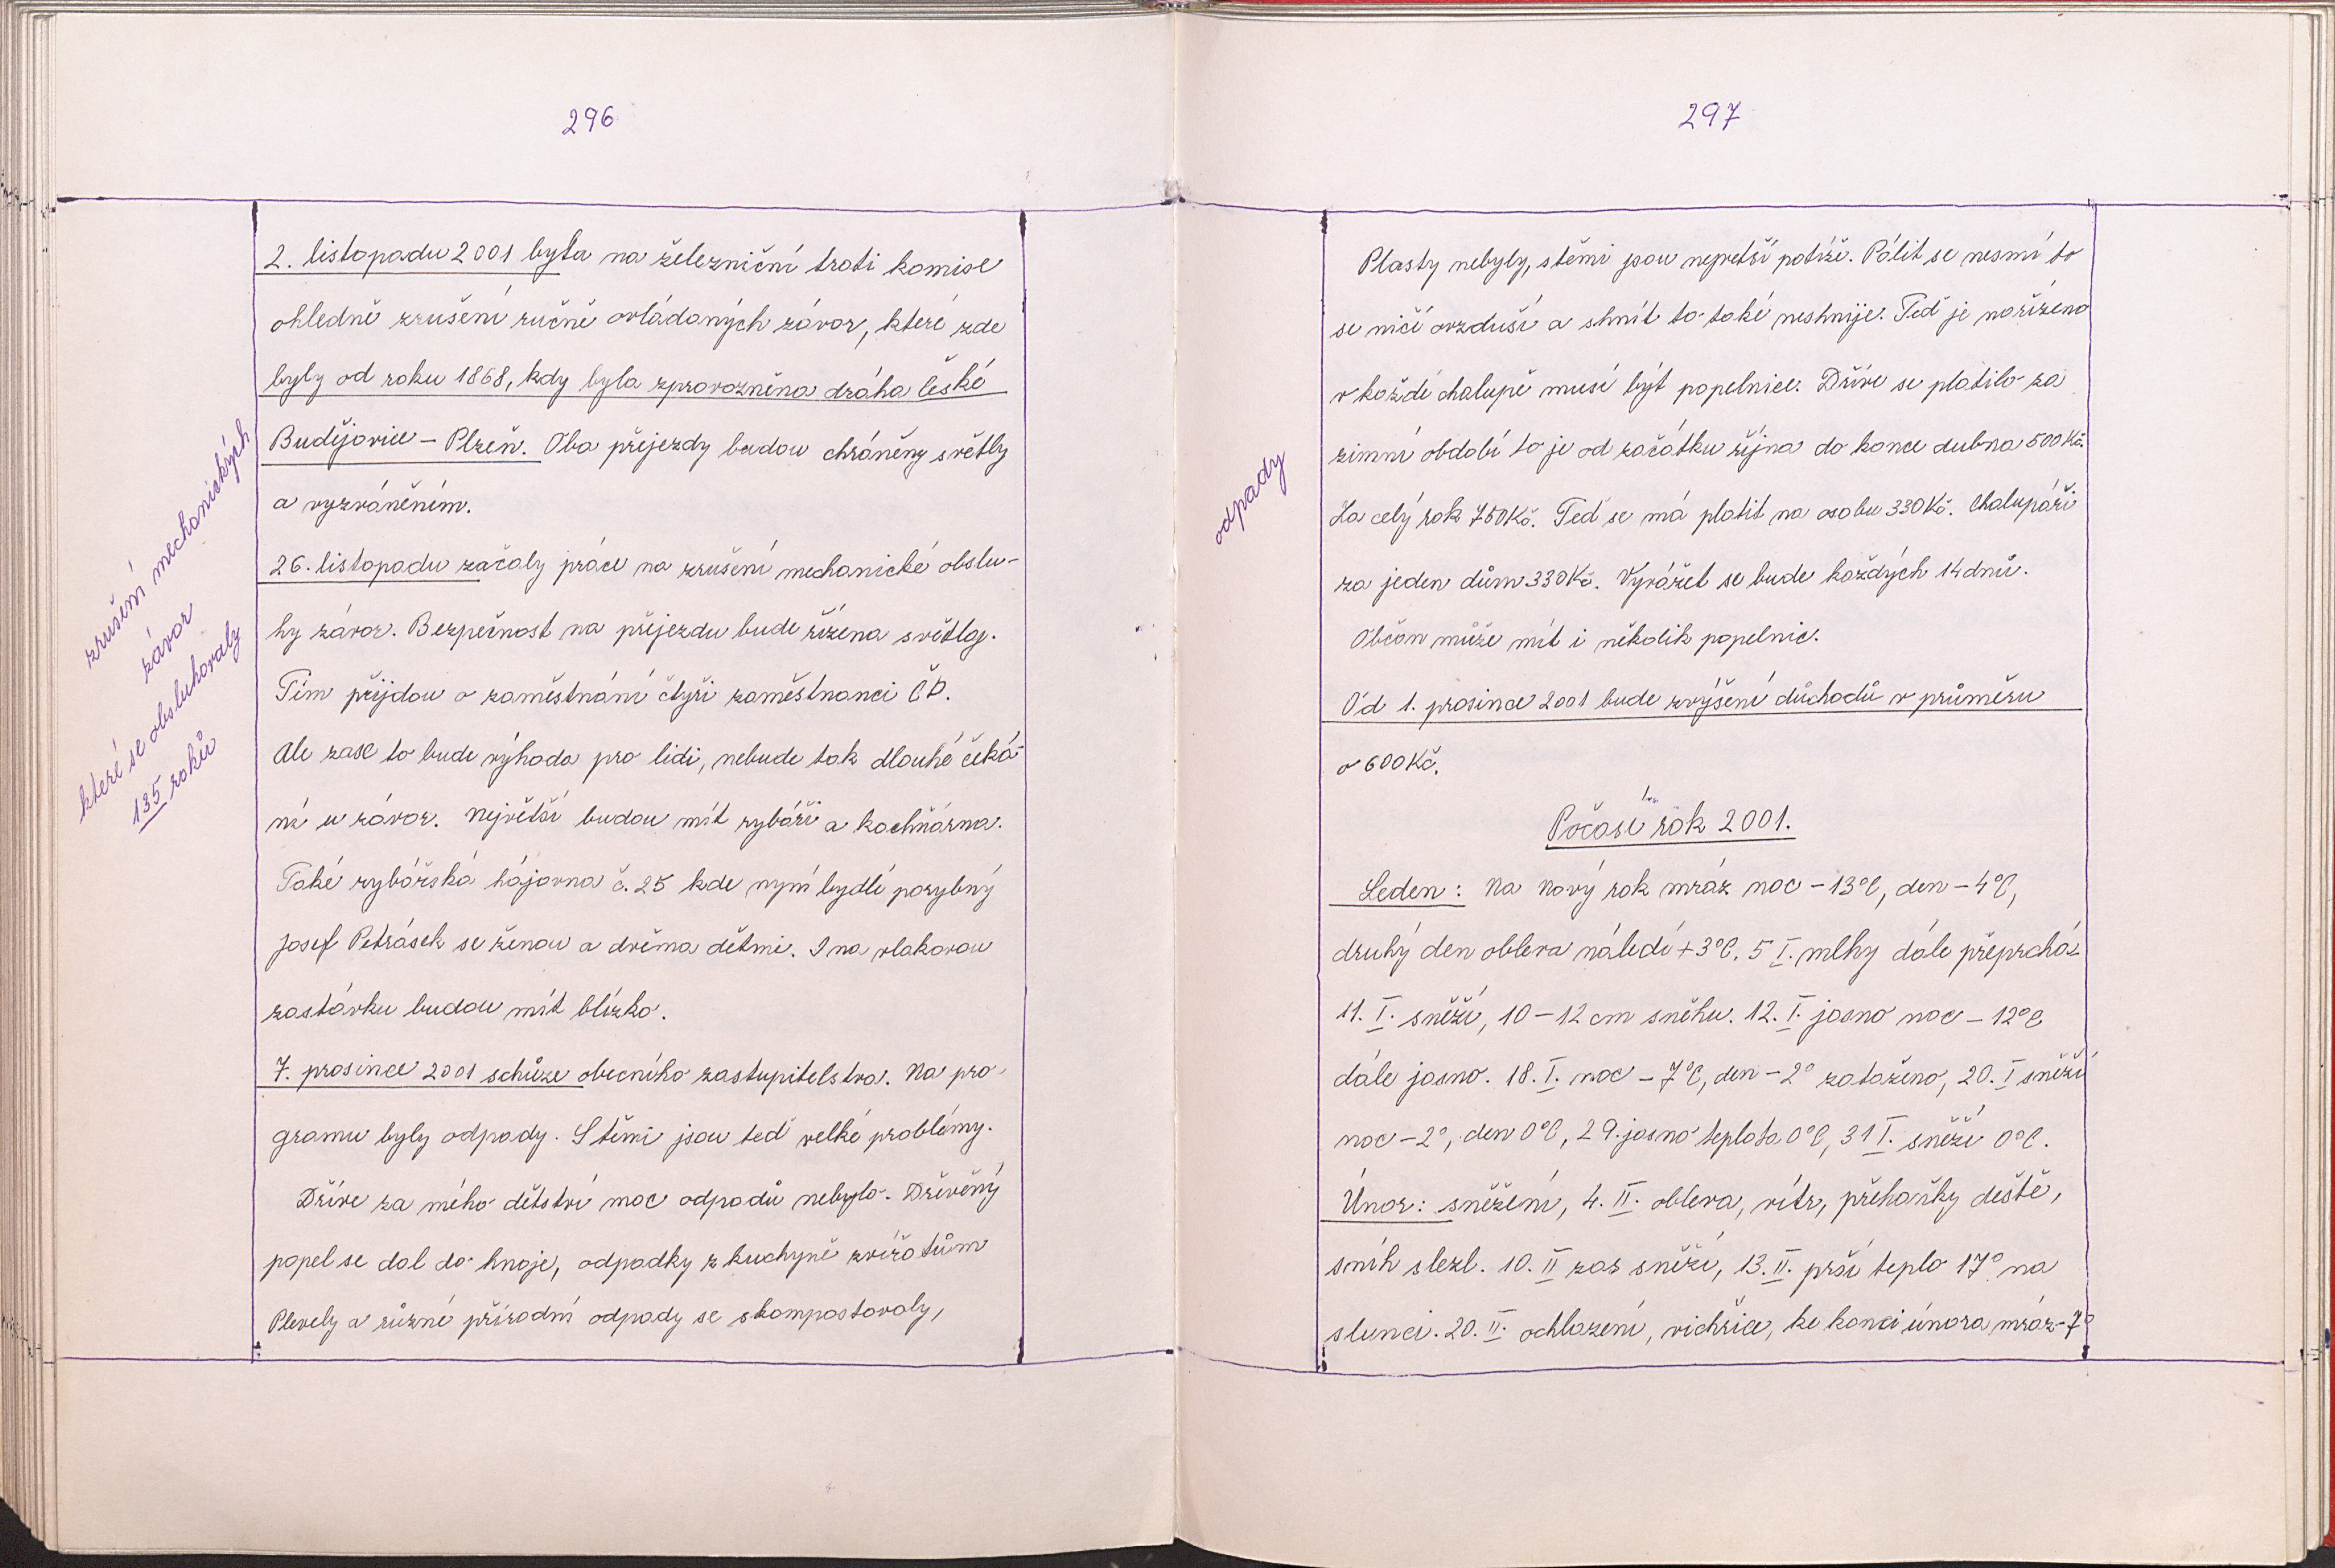 296
2. listopadu 2001 byla na železniční trati komise
ohledně zrušení ručně ovládaných závor, které zde
byly od roku 1868, kdy byla zprovozněna dráha České
Budějovice – Plzeň. Oba přejezdy budou chráněny světly
a vyzváněním.
26. listopadu začaly práce na zrušení mechanické obslu-
hy závor. Bezpečnost na přejezdu bude řízena světly.
Tím přijdou o zaměstnání čtyři zaměstnanci ČD.
Ale zase to bude výhoda pro lidi, nebude tak dlouhé čeká-
ní u závor. Největší budou mít rybáři a kachňárna.
Také rybářská hájovna č. 25 kde nyní bydlí porybný
Josef Petrásek se ženou a dvěma dětmi. I na vlakovou
zastávku budou mít blízko.
7. prosince 2001 schůze obecního zastupitelstva. Na pro-
gramu byly odpady. S těmi jsou teď velké problémy.
Dříve za mého dětství moc odpadů nebylo. Dřevěný
popel se dal do hnoje, odpadky z kuchyně zvířatům
Plevely a různé přírodní odpady se skompostovaly,
zrušení mechanických
závor
které se obsluhovaly
135 roků
297
Plasty nebyly, s těmi jsou nejvetší potíže. Pálit se nesmí to
se ničí ovzduší a shnít to také neshnije. Teď je nařízeno
v každé chalupě musí být popelnice. Dříve se platilo za
zimní období to je od začátku října do konce dubna 500 Kč.
Za celý rok 750 Kč. Teď se má platit na osobu 330 Kč. Chalupáři
za jeden dům 330 Kč. Vyvážet se bude každých 14 dnů.
Občan může mít i několik popelnic.
Od 1. prosince 2001 bude zvýšení důchodů v průměru
o 600 Kč.
Počasí rok 2001.
Leden: Na Nový rok mráz noc – 13°C, den – 4°C,
druhý den obleva náledí + 3°C. 5 I. mlhy dále přeprchá-
11. I. sněží, 10 – 12 cm sněhu. 12. I. jasno noc – 12°C
dále jasno. 18. I. noc – 7°C, den – 2° zataženo, 20. I sněží
noc – 2°, den 0°C, 29. jasno teplota 0°C, 31 I. sněží 0°C.
Únor: sněžení, 4. II. obleva, vítr, přehaňky deště,
sníh slezl. 10. II zas sněží, 13. II. prší teplo 17° na
slunci. 20. II. ochlazení, vichřice, ke konci února mráz – 7°
odpady